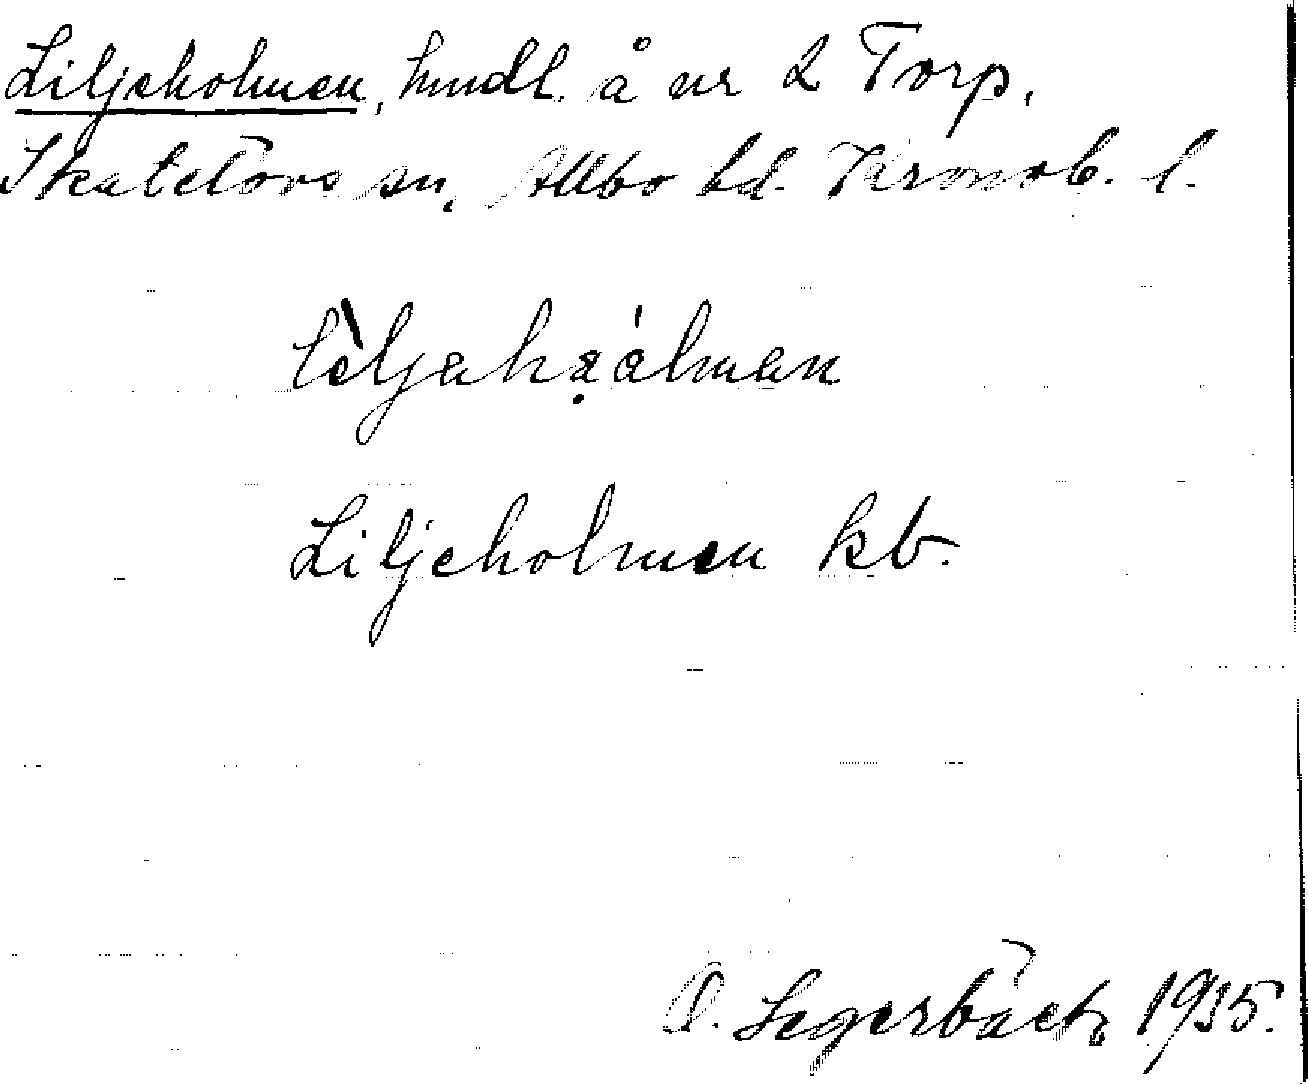 Liljeholmen, hmdl. å nr 2 Torp,
Skatelövs sn, Allbo hd. Kronob. l.
Liljeholmen kb.
O. Segerbäck 1935.